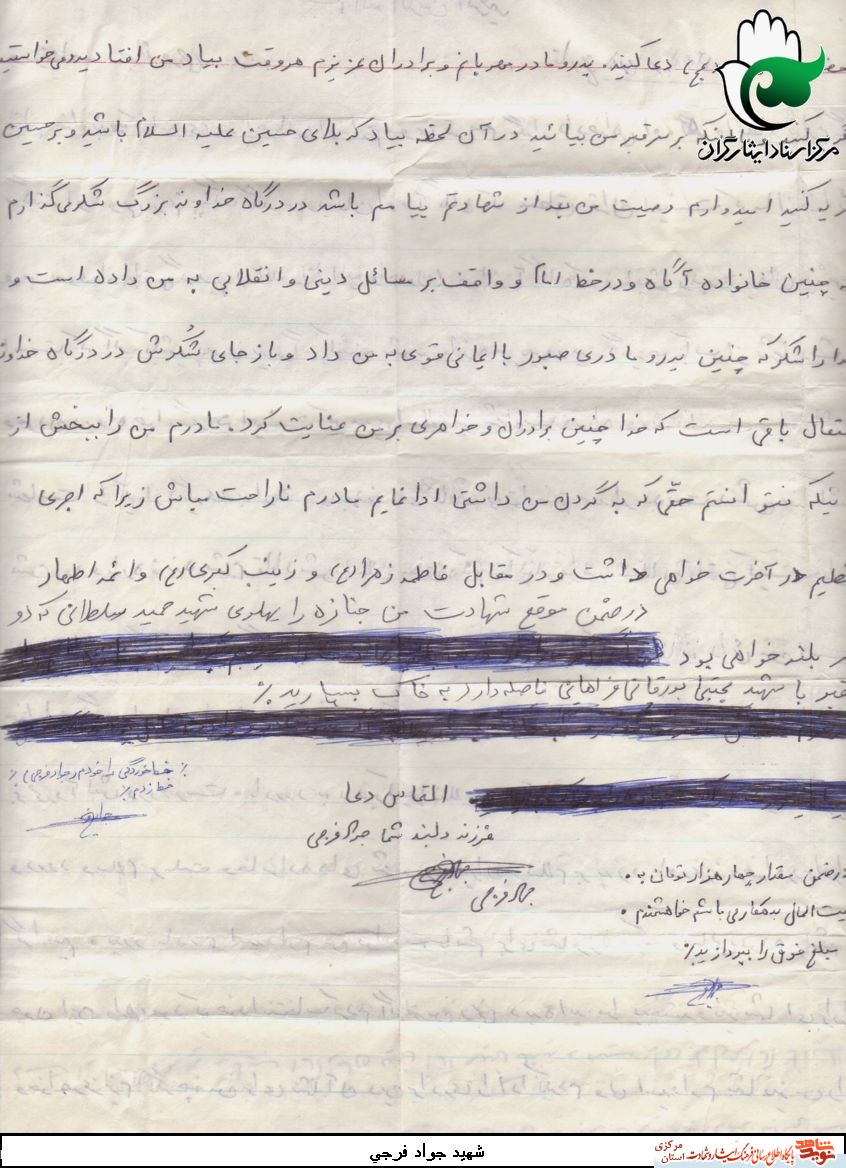 دعا کنید. پدر و مادر مهربانم و برادران عزیزم هر وقت بیاد من افتادید و می خواستید
کنید بر سر قبر من بیائید در آن لحظه بیاد کربلای حسین علیه السلام باشید و بر حسین
گریه کنید امیدوارم وصیت من بعد از شهادتم پیامم باشد در درگاه خداوند بزرگ شکر می گذارم
چنین خانواده آگاه و در خط امام و واقف بر مسائل دینی و انقلابی به من داده است و
خدا را شکر که چنین پدر و مادری صبور با ایمانی قوی به من داد و باز جای شکرش در درگاه خداوند
متعال باقی است که خدا چنین برادران و خواهری بر من عنایت کرد. مادرم من را ببخش از
اینکه نتوانستم حقّی که به گردن من داشتی ادا نمایم مادرم ناراحت مباش زیرا که اجری
عظیم در آخرت خواهی داشت و در مقابل فاطمه زهرا (س) و زینب کبری (س) و ائمه اطهار
در ضمن موقع شهادت من جنازه را پهلوی شهید حمید سلطانی که دو
سر بلند خواهی بود
قبر با شهید مجتبی بورقانی فراهانی فاصله دارد به خاک بسپارید٪
٪ خط خوردگی را خودم (جواد فرجی)
خط زدم٪
التماس دعا
فرزند دلبند شما جواد فرجی
جواد فرجی
در ضمن مقدار چهار هزار تومان به
بیت المال بدهکار می باشم خواهشمندم.
مبلغ فوق را بپردازید٪
مرکز اسناد ایثارگران
شهید جواد فرجي
نوید شاهد
پایگاه اطلاع رسانی فرهنگ ایثار و شهادت
استان مرکزی